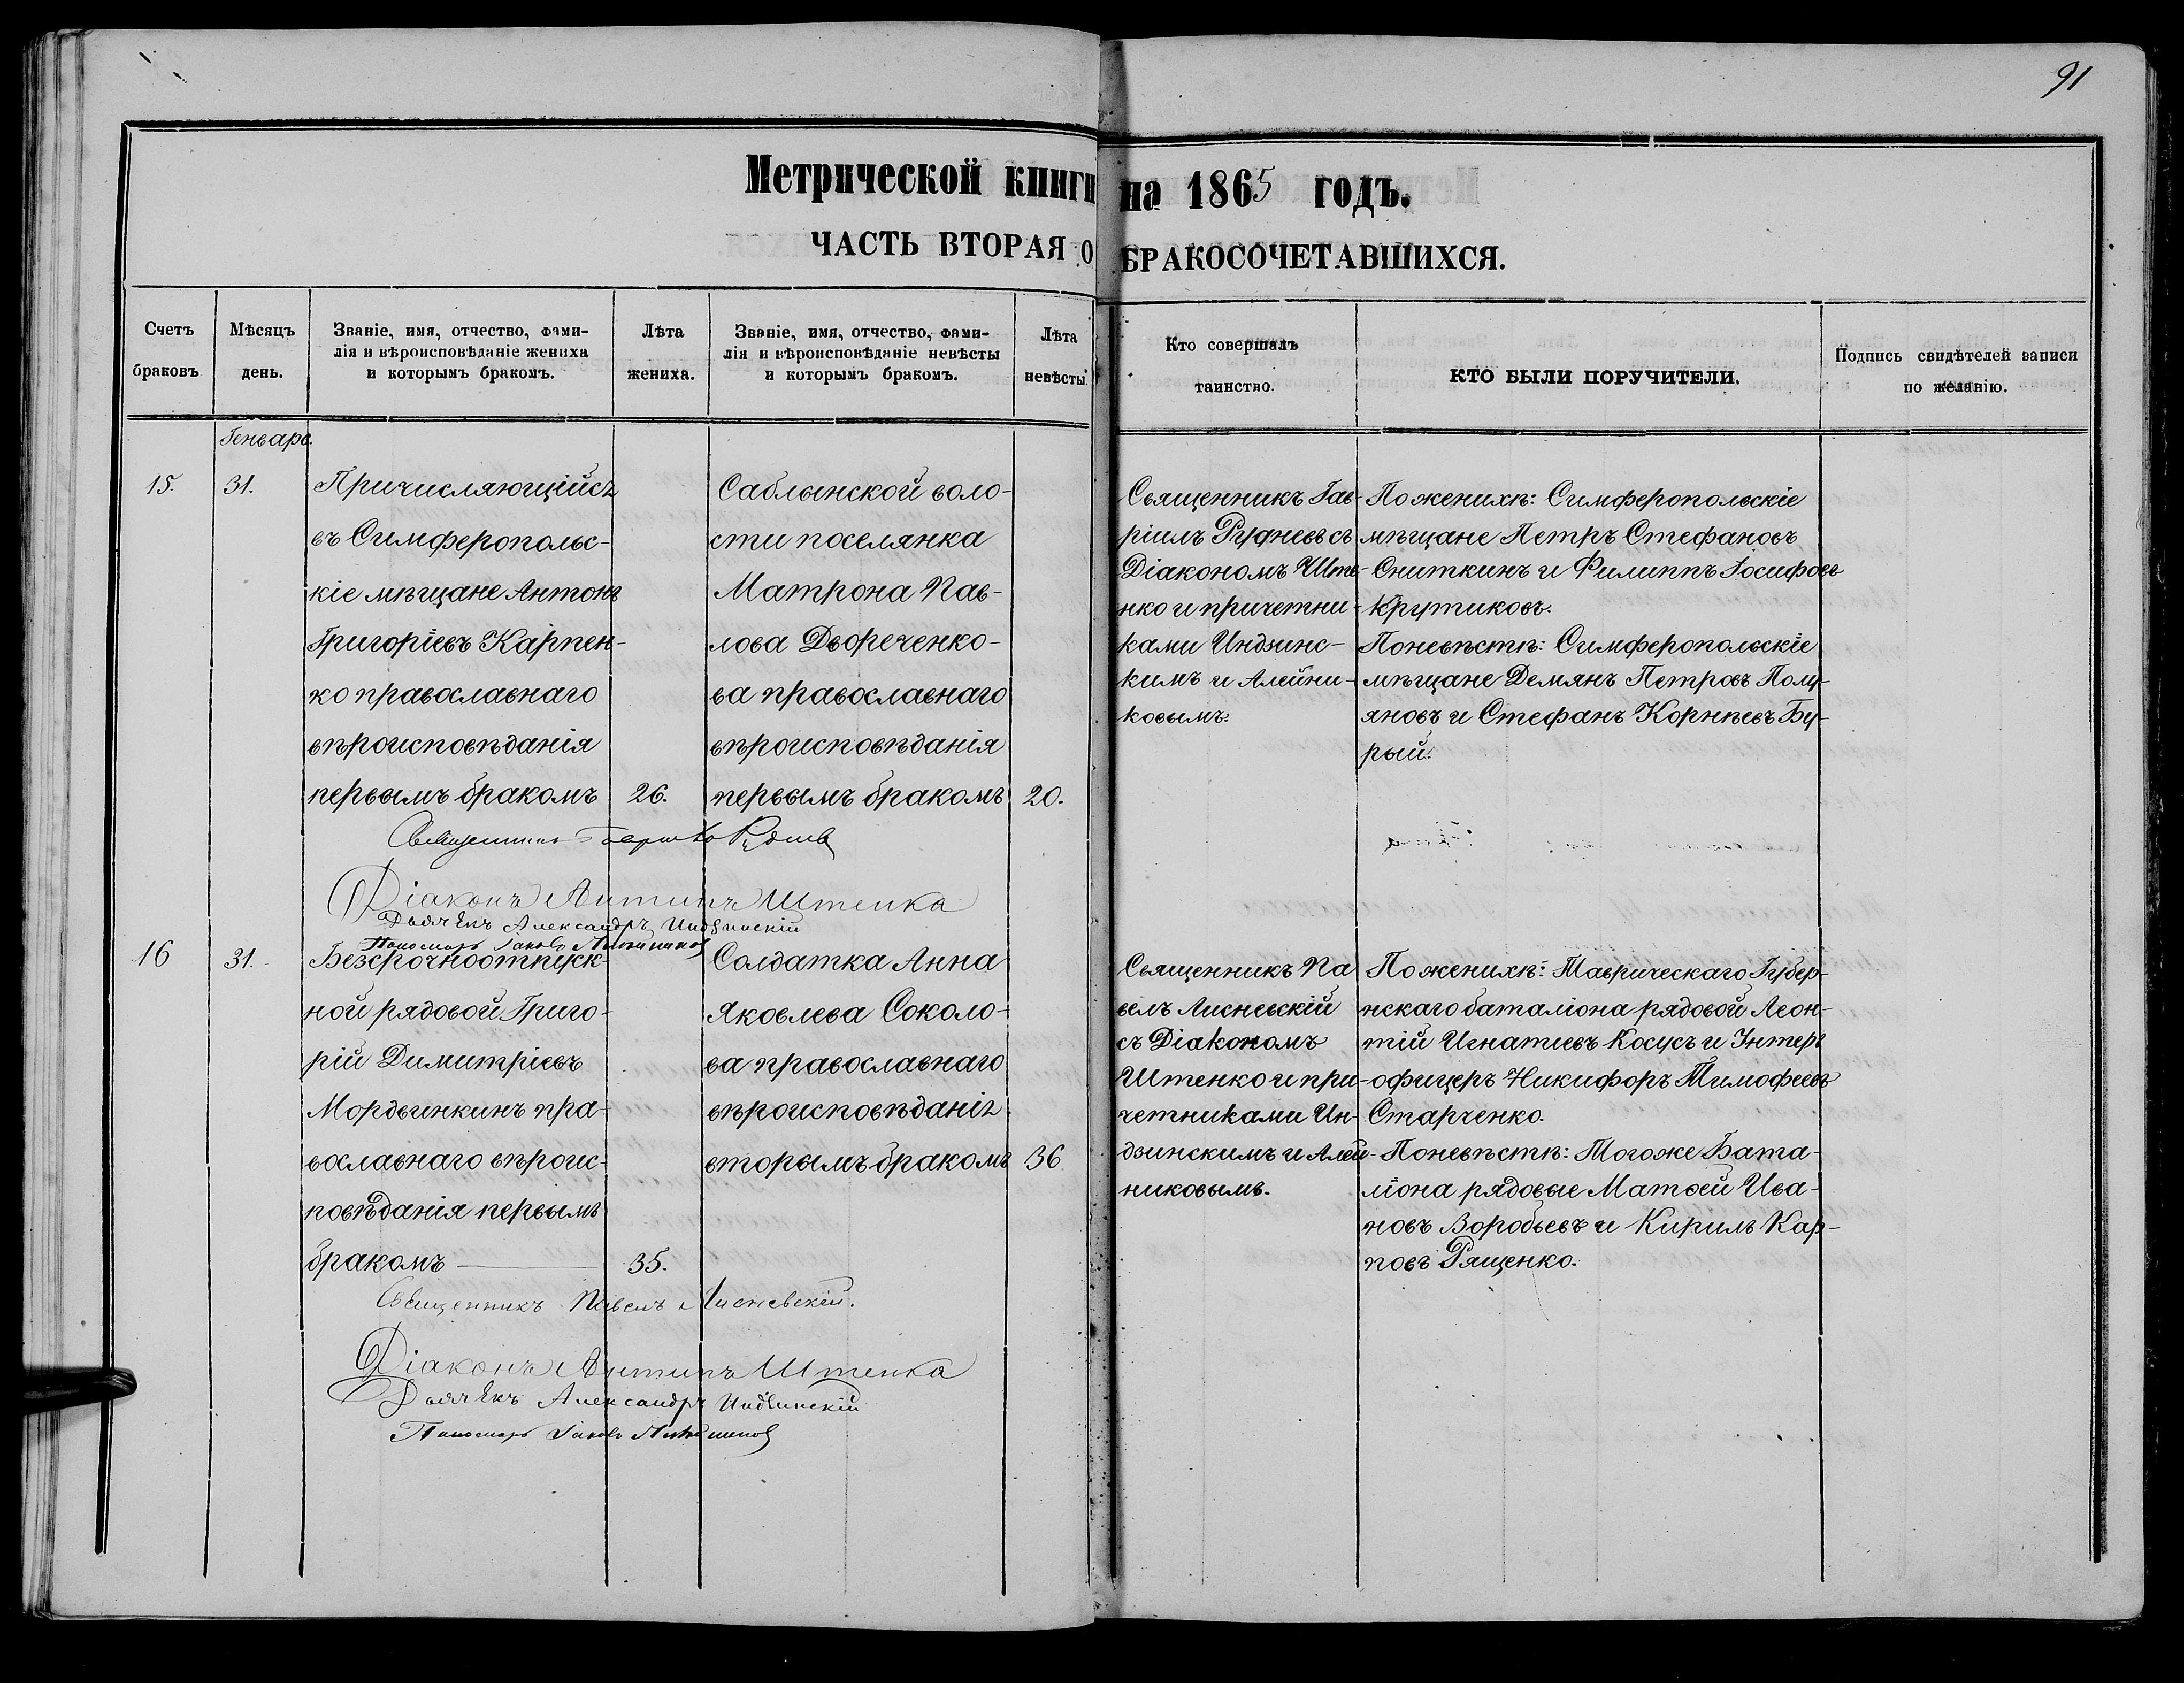 91
Метрической книги на 1865 годъ.
ЧАСТЬ ВТОРАЯ О БРАКОСОЧЕТАВШИХСЯ.
Счетъ
браковъ
Мѣсяцъ
день.
Званіе, имя, отчество, фами-
лія и вѣроисповѣданіе жениха
и которымъ бракомъ.
Лѣта
жениха.
Званіе, имя, отчество, фами-
лія и вѣроисповѣданіе невѣсты
и которымъ бракомъ.
Лѣта
невѣсты.
Кто совершалъ
таинство.
КТО БЫЛИ ПОРУЧИТЕЛИ.
Подпись свидѣтелей записи
по желанію.
Генварь.
15.
31.
Причисляющійся
въ Симферопольс-
кіе мѣщане Антонъ
Григоріевъ Карпен-
ко православнаго
вѣроисповѣданія
первымъ бракомъ
26.
Саблынской воло-
сти поселянка
Матрона Пав-
лова Двореченко-
ва православнаго
вѣроисповѣданія
первымъ бракомъ
20.
Священникъ Гав-
ріилъ Рудневъ съ
Діакономъ Ште-
нко и причетни-
ками Индзинс-
кимъ и Алейни-
ковымъ.
По женихѣ: Симферопольскіе
мѣщане Петръ Стефановъ
Сниткинъ и Филиппъ Іосифовъ
Крутиковъ.
По невѣстѣ: Симферопольскіе
мѣщане Демянъ Петровъ Полу-
яновъ и Стефанъ Корнѣевъ Бу-
рый.
Священникъ
Діаконъ Антипъ Штенка
Дьячекъ Александръ Индзинскій
Пономарь Іаковъ
16
31.
Безсрочноотпуск-
ной рядовой Григо-
рій Димитріевъ
Мордвинкинъ пра-
вославнаго вѣроис-
повѣданія первымъ
бракомъ
35.
Солдатка Анна
Яковлева Соколо-
ва православнаго
вѣроисповѣданія
вторымъ бракомъ
36
Священникъ Па
велъ Лисневскій
съ Діакономъ
Штенко и при-
четниками Ин-
дзинскимъ и Алей-
никовымъ.
По женихѣ: Таврическаго Губер-
нскаго баталіона рядовой Леон-
тій Игнатиевъ Косусъ и Унтеръ
офицеръ Никифоръ Тимофеевъ
Старченко.
По невѣстѣ: Тогоже Бата-
ліона рядовые Матѳей Ива-
новъ Воробьевъ и Кирилъ Кар-
повъ Рященко.
Священникъ Павелъ Лисневскій.
Діаконъ Антипъ Штенка
Дьячекъ Александръ Индзинскій
Пономарь Іаковъ